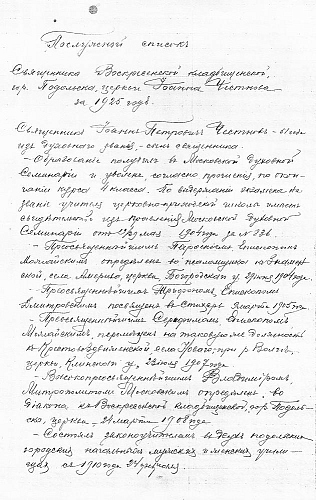 Послужной список
Священника Воскресенской кладбищенской,
гор. Подольска, церкви Иоанна Честнова
за 1925 годъ.
Священник Иоанн Петрович Честнов -
из духовного звания, - сын священника.
- Образование получил в Московской Духовной
Семинарии и уволен согласно прошения, по окон-
чании курса 4 класса. По выдержании экзамена на
звание учителя церковно-приходской школы имеет
свидетельство из правления Московской Духовной
Семинарии от мая 1904 года за №
- Преосвященнейшим Епископом
Можайским определен во псаломщика
села церкви 1904 года.
- Преосвященнейшим Трифоном Епископом
Дмитровским посвящен в Стихарь 9 марта 1905 года
- Преосвященнейшим Серафимом Епископом
Можайским, перемещен на таковую же должность
к Крестовоздвиженской села Нового, при р.
церкви, Клинского у. 1907 года
- Высокопреосвященнейшим Владимиром,
Митрополитом Московским определен во
диакона к Воскресенской кладбищенской, гор. Подоль-
ска, церкви - 24 марта 1908 года
- Состоял законоучителем в двух подольских
городских начальных мужских и женских учили-
щах с 1910 года 24